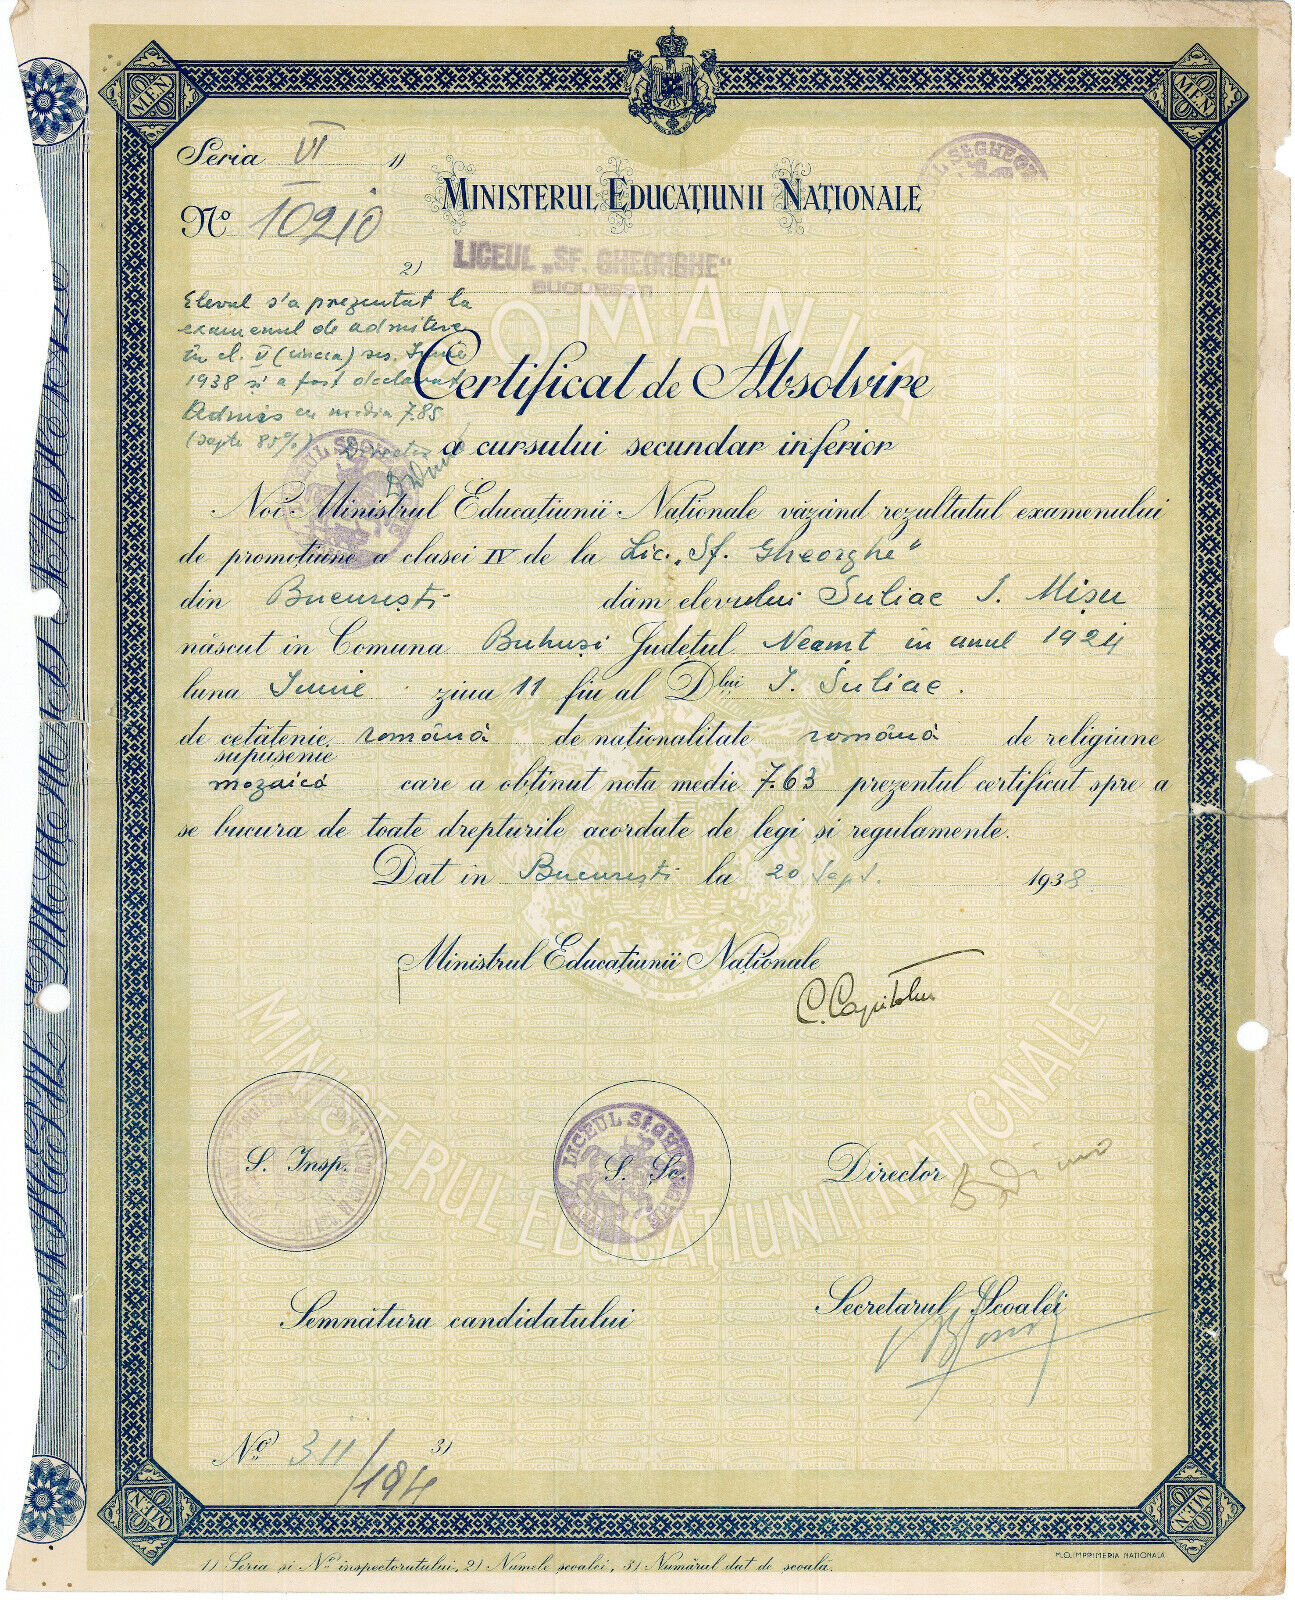 Seria VI 1)
No 10210
MINISTERUL EDUCAȚIUNII NAȚIONALE
2) LICEUL „SF. GHEORGHE"
BUCUREȘTI
Elevul s'a prezentat la
examenul de admitere
în cl. V (cincea) ses. Iunie
1938 și a fost declarat
Admis cu media 7.85
(șapte 85%) Director
ROMANIA
Certificat de Absolvire
a cursului secundar inferior
Noi Ministrul Educațiunii Naționale văzând rezultatul examenului
de promoțiune a clasei IV de la Lic. „Sf. Gheorghe"
din București dăm elevului Suliac I. Mișu
născut în Comuna Buhuși Județul Neamț în anul 1924
luna Iunie ziua 11 fiu al Dlui I. Suliac.
de cetățenie română de naționalitate română de religiune
supușenie
mozaică care a obținut nota medie 7.63 prezentul certificat spre a
se bucura de toate drepturile acordate de legi și regulamente.
Dat în București la 20 Sept. 1938
Ministrul Educațiunii Naționale
C. Capitolin
MINISTERUL EDUCAȚIUNII NAȚIONALE
S. Insp.
LICEUL SF. GHEORGHE
S. Sc.
Director
Semnătura candidatului
Secretarul Școalei
No. 311/194 3)
1) Seria și No inspectorutului, 2) Numele școalei, 3) Numărul dat de școală.
M.O. IMPRIMERIA NAȚIONALĂ
M.E.N.